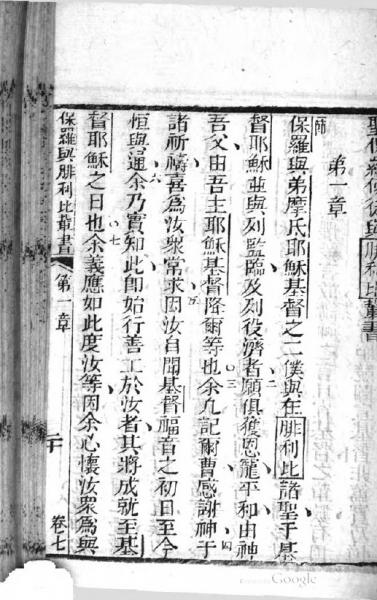 聖保羅使徒與腓利比輩書
師
第一章
保羅與弟摩氏耶穌基督之二僕與在腓利比諸聖于基
二
督耶穌並與列監臨及列役濟者願俱獲恩寵平和由神
三 四
吾父由吾主耶穌基督降爾等也余凡記爾曹感謝神于
五
諸祈禱喜為汝眾常求因汝自聞基督福音之初日至今
六
恒與通余乃實知此卽始行善工於汝者其將成就至基
七
督耶穌之日也余義應如此度汝等因余心懷汝眾為與
保羅與腓利比輩書 第一章 二十 卷七
Google